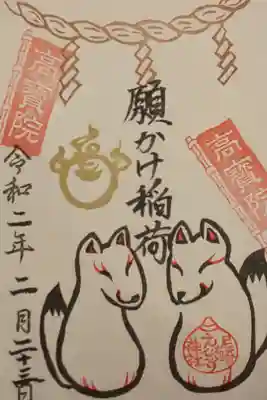 高寳院
願かけ稲荷
高寳院
令和二年 二月二十三日